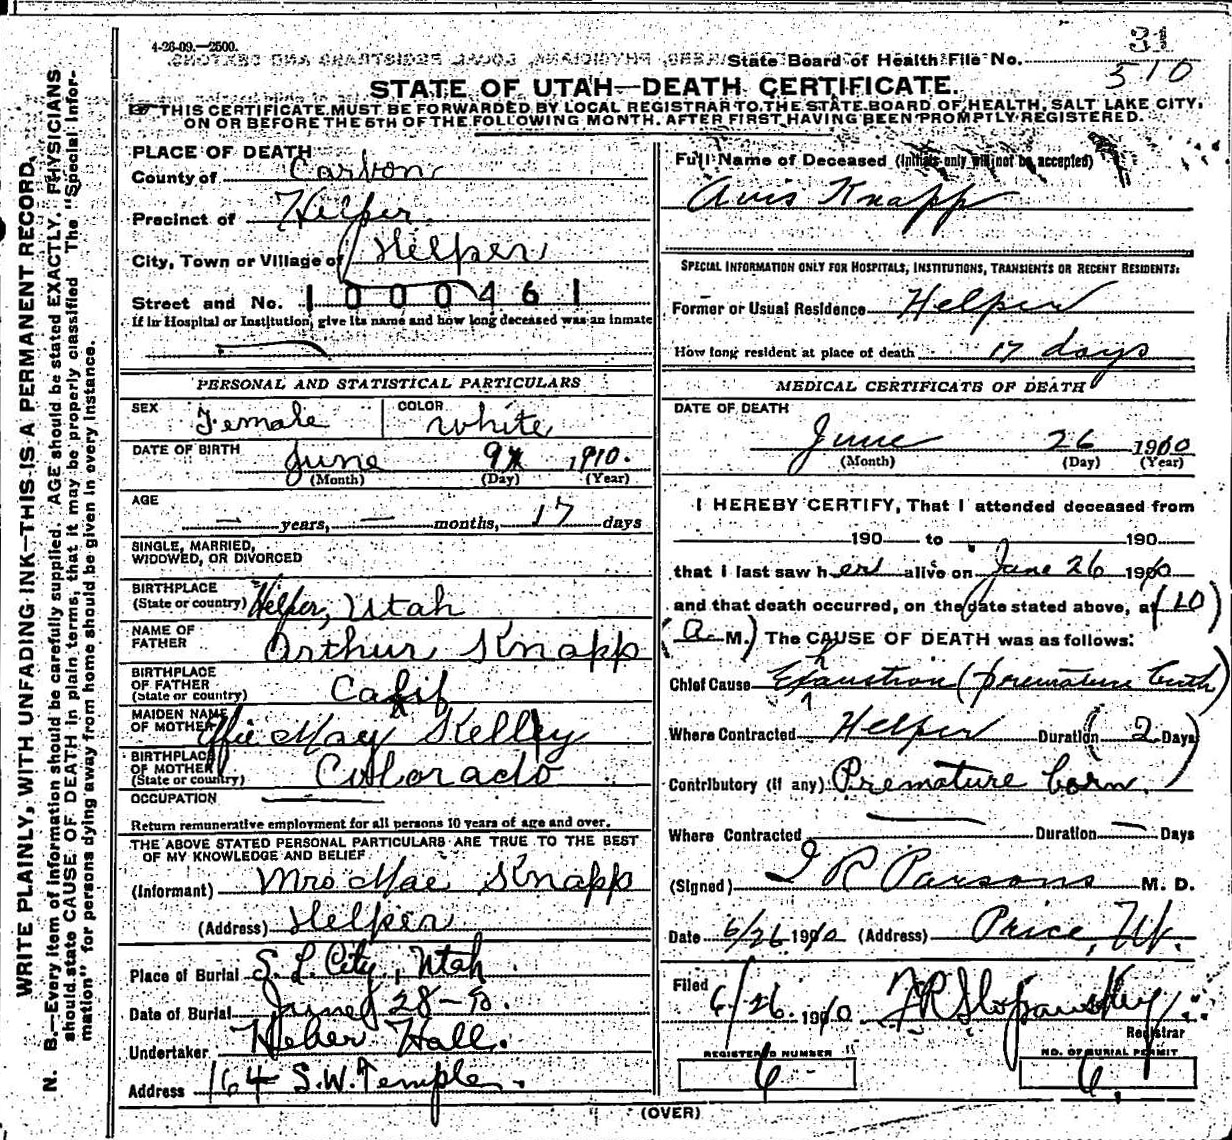 WRITE PLAINLY, WITH UNFADING INK—THIS IS A PERMANENT RECORD.
N. B.—Every item of information should be carefully supplied. AGE should be stated EXACTLY. PHYSICIANS
should state CAUSE OF DEATH in plain terms, that it may be properly classified. The "Special Infor-
mation" for persons dying away from home should be given in every instance.
4-26-09.—2500.
31
State Board of Health File No.
510
STATE OF UTAH—DEATH CERTIFICATE.
THIS CERTIFICATE MUST BE FORWARDED BY LOCAL REGISTRAR TO THE STATE BOARD OF HEALTH, SALT LAKE CITY,
ON OR BEFORE THE 5TH OF THE FOLLOWING MONTH, AFTER FIRST HAVING BEEN PROMPTLY REGISTERED.
PLACE OF DEATH
County of Carbon
Precinct of Helper
City, Town or Village of Helper
Street and No. 1000461
If in Hospital or Institution, give its name and how long deceased was an inmate
PERSONAL AND STATISTICAL PARTICULARS
SEX Female COLOR White
DATE OF BIRTH June 9 1910.
(Month) (Day) (Year)
AGE — years, — months, 17 days
SINGLE, MARRIED,
WIDOWED, OR DIVORCED
BIRTHPLACE
(State or country) Helper, Utah
NAME OF
FATHER Arthur Knapp
BIRTHPLACE
OF FATHER
(State or country) Calif
MAIDEN NAME
OF MOTHER Effie May Kelley
BIRTHPLACE
OF MOTHER
(State or country) Colorado
OCCUPATION —
Return remunerative employment for all persons 10 years of age and over.
THE ABOVE STATED PERSONAL PARTICULARS ARE TRUE TO THE BEST
OF MY KNOWLEDGE AND BELIEF
(Informant) Mrs Mae Knapp
(Address) Helper
Place of Burial S. L. City, Utah
Date of Burial June 28-
Undertaker Heber Hall.
Address 164 S.W. Temple.
Full Name of Deceased (Initials only will not be accepted)
Avis Knapp
SPECIAL INFORMATION ONLY FOR HOSPITALS, INSTITUTIONS, TRANSIENTS OR RECENT RESIDENTS:
Former or Usual Residence Helper
How long resident at place of death 17 days
MEDICAL CERTIFICATE OF DEATH
DATE OF DEATH
June 26 1910
(Month) (Day) (Year)
I HEREBY CERTIFY, That I attended deceased from
190 to 190
that I last saw her alive on June 26 1910
and that death occurred, on the date stated above, at (10
a. M.) The CAUSE OF DEATH was as follows:
Chief Cause Exhaustion (premature birth)
Where Contracted Helper Duration (2 Days)
Contributory (if any) Premature born.
Where Contracted — Duration — Days
(Signed) J R Parsons M. D.
Date 6/26 1910 (Address) Price, Ut.
Filed 6/26 1910
Registrar
REGISTERED NUMBER
6
NO. OF BURIAL PERMIT
6
(OVER)